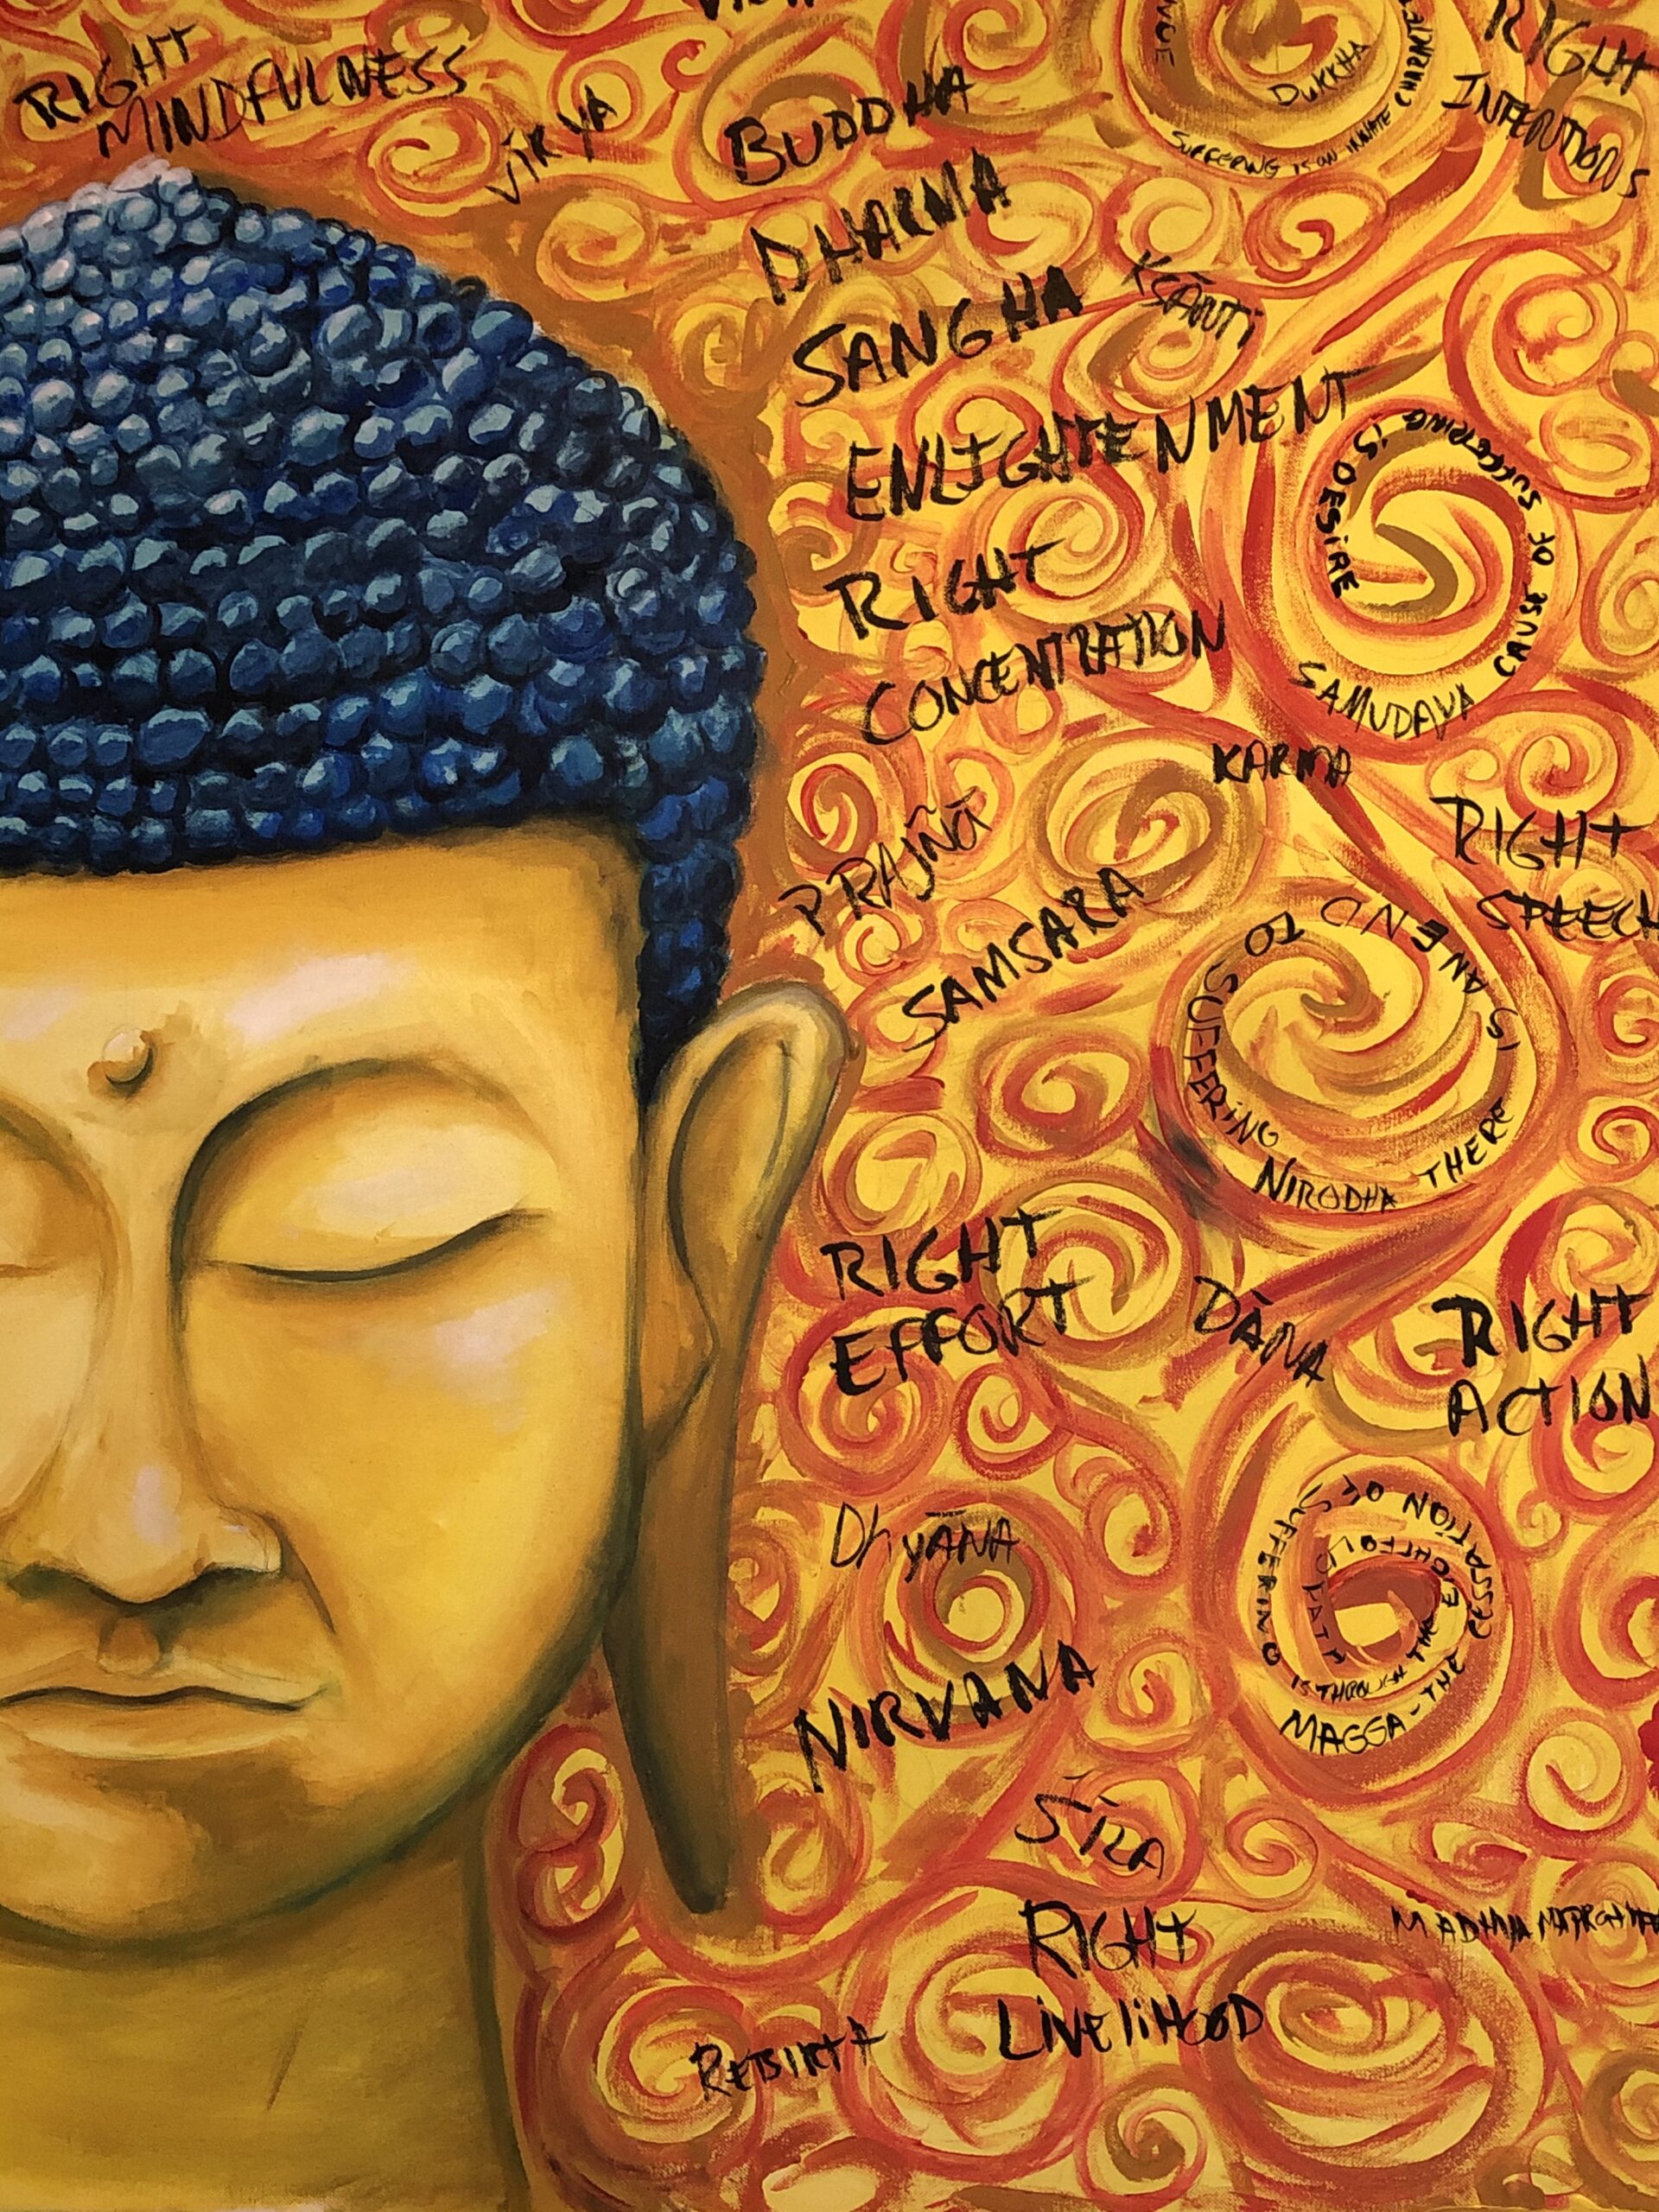 RIGHT
MINDFULNESS
VĪRYA
BUDDHA
DHARMA
SANGHA
KSĀNTi
ENLIGHTENMENT
DUKKHA
SUFFERING IS AN INNATE
RIGHT
INTENTIONS
RIGHT
CONCENTRATION
SAMUDAYA CAUSE OF SUFFERING iS DESiRE
KARMA
PRAJÑĀ
SAMSARA
RIGHT
SPEECH
NIRODHA THERE IS AN END TO SUFFERiNG
RIGHT
EFFORT
DÀNA
RIGHT
ACTION
DhyĀNA
NIRVANA
MAGGA-THE CESSATION OF SUFFERING
IS THROUGH THE EIGHTFOLD PATH
RIGHT
LiVeliHOOD
REBIRTH